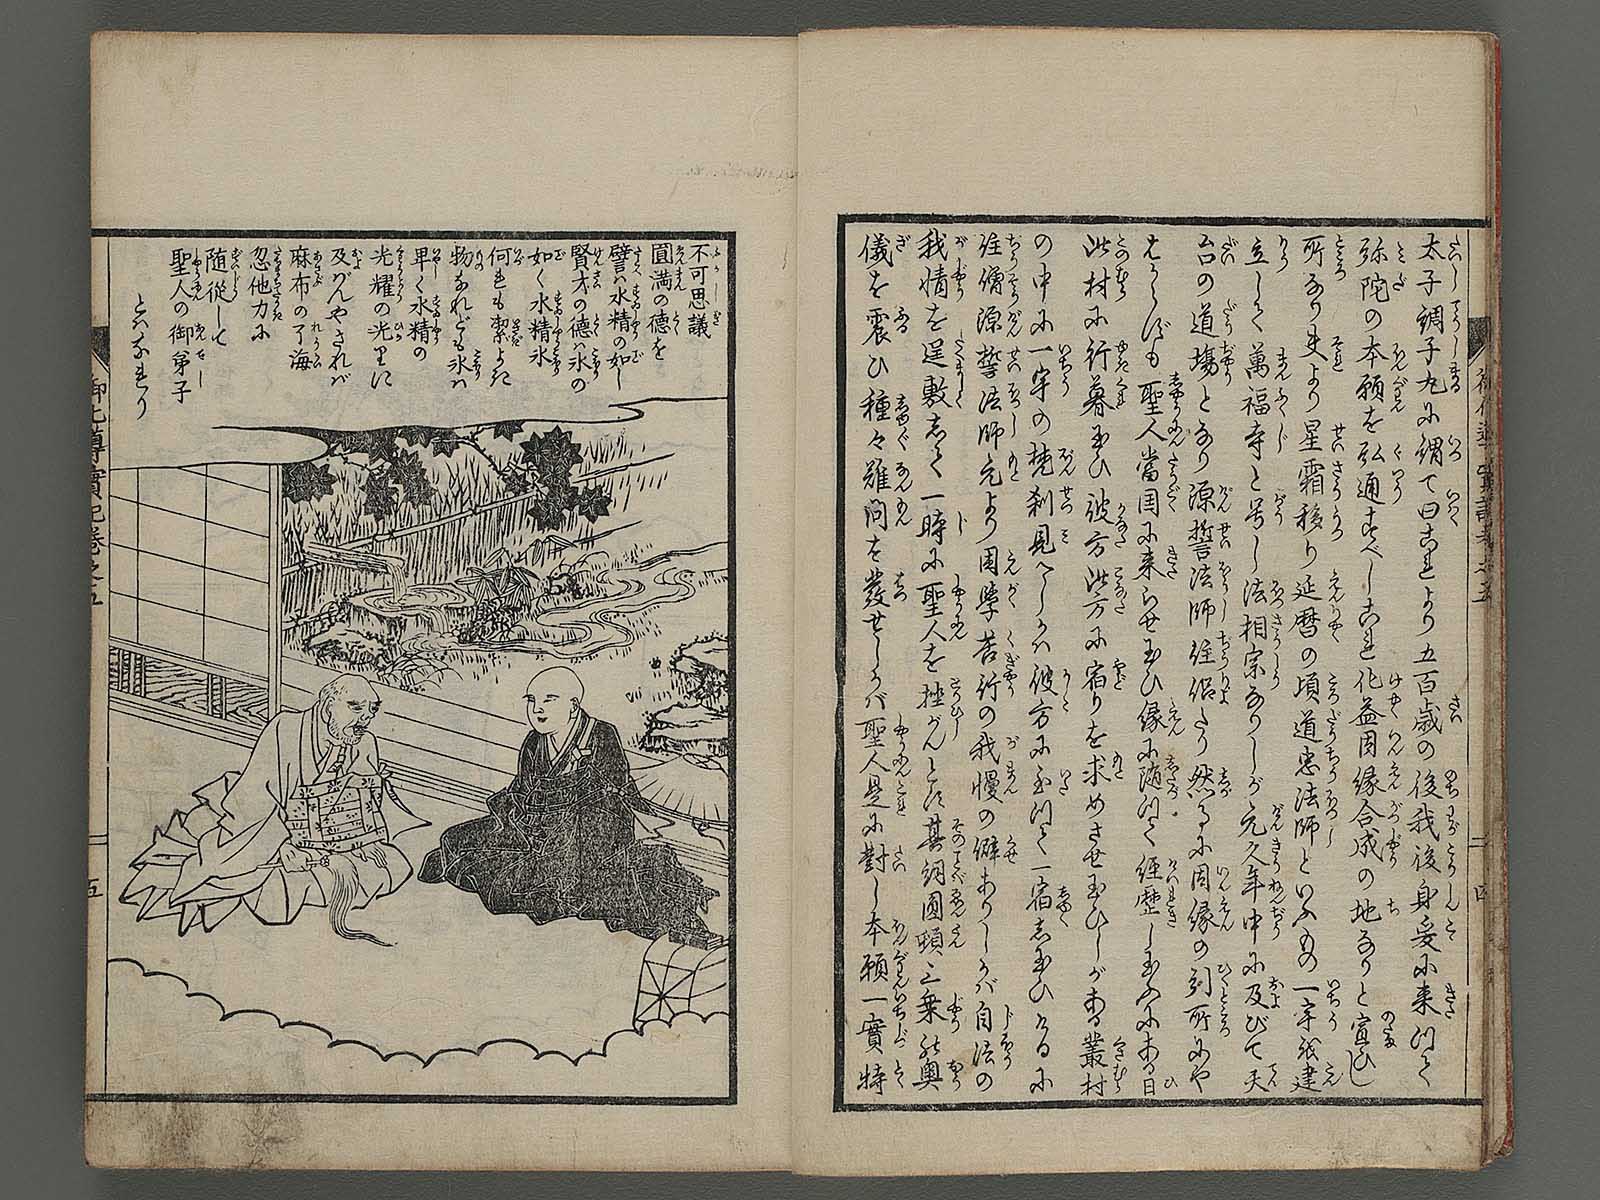 太子調子丸に謂て曰これより五百歳の後我後身妥に来りて
弥陀の本願を弘通すべしこれ化益因縁合成の地なりと宣ひし
所なり夫より星霜移り延暦の頃道忠法師といふもの一宇を建
立して萬福寺と号し法相宗なりしが元久年中に及びて天
台の道場となり源誓法師住侶たり然るに因縁の到所にや
聖人當国に来らせ玉ひ縁に随つて経歴し玉ふにある日
此村に行暮玉ひ彼方此方に宿りを求めさせ玉ひしがある叢村
の中に一宇の梵刹見へしかバ彼方に至つて一宿し玉ひけるに
住僧源誓法師元より因学苦行の我慢の癖ありしかバ自法の
我情を逞敷して一時に聖人を挫がんとて其詞圓頓三乗の奥
儀を震ひ種々難問を發せしかバ聖人是に對し本願一實特
不可思議
圓満の徳を
譬ハ水精の如し
賢才の徳ハ氷の
如く水精氷
何れも潔よき
物なれども氷ハ
早く水精の
光耀の光りに
及バんやされバ
麻布の了海
忽他力に
随従して
聖人の御弟子
とハなれり
五